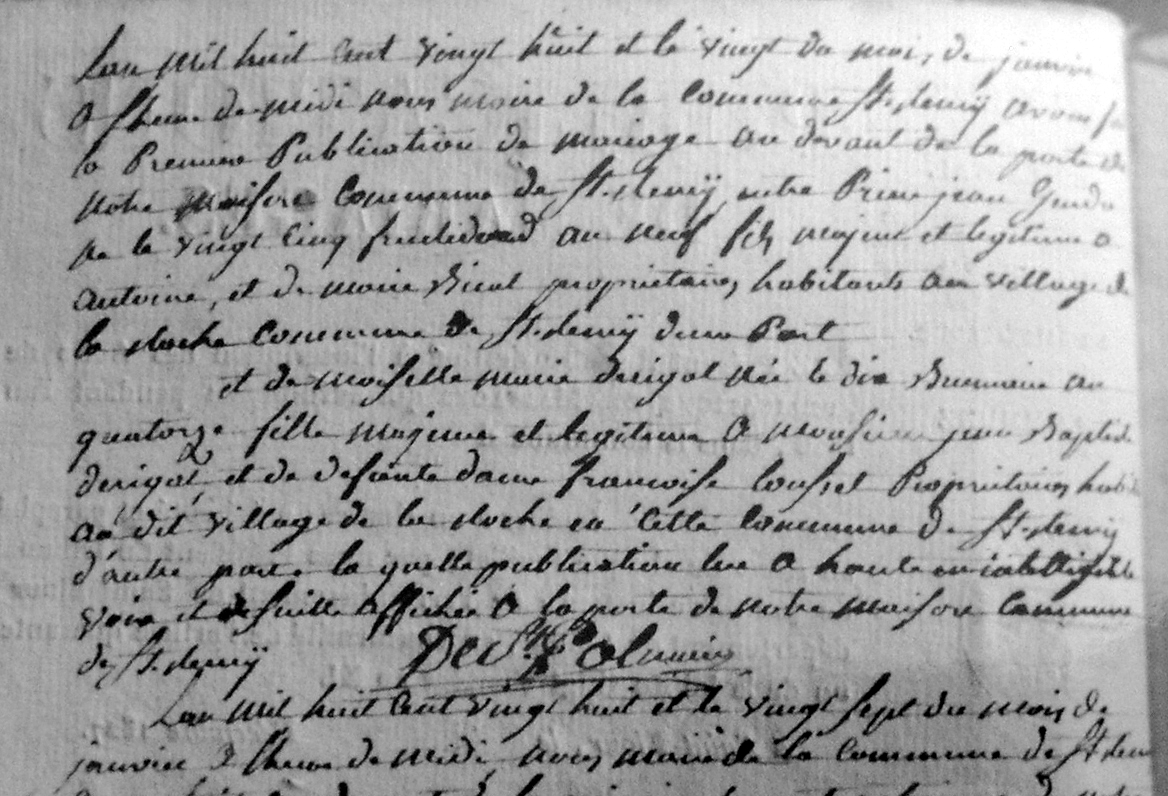 Lan Mil huit Cent vingt huit et le vingt du mois de janvier
a lheure de midi nous maire de la Commune St. remÿ avons
la Premiere Publication de mariage au devant de la porte de
notre maison Commune de St. remÿ entre Pierre jean
ne le vingt Cinq fructidord an neuf fils majeur et legitime a
antoine, et de marie proprietaires habitants au village de
la Roche Commune de St. remÿ dune Part
et de moiselle marie derigot née le dix Brumaire an
quatorze fille majeure et legitime a monsieur jean Baptiste
derigot, et de defeinte dame francoise Proprietaires
au dit village de la Roche en Cette Commune de St. remÿ
d'autre part. la quelle publication lue a haute en intelligible
voix et de suitte affichée a la porte de notre maison Commune
de St. remÿ
Lan Mil huit Cent vingt huit et le vingt sept du mois de
janvier a lheure de midi, nous maire de la Commune de St.